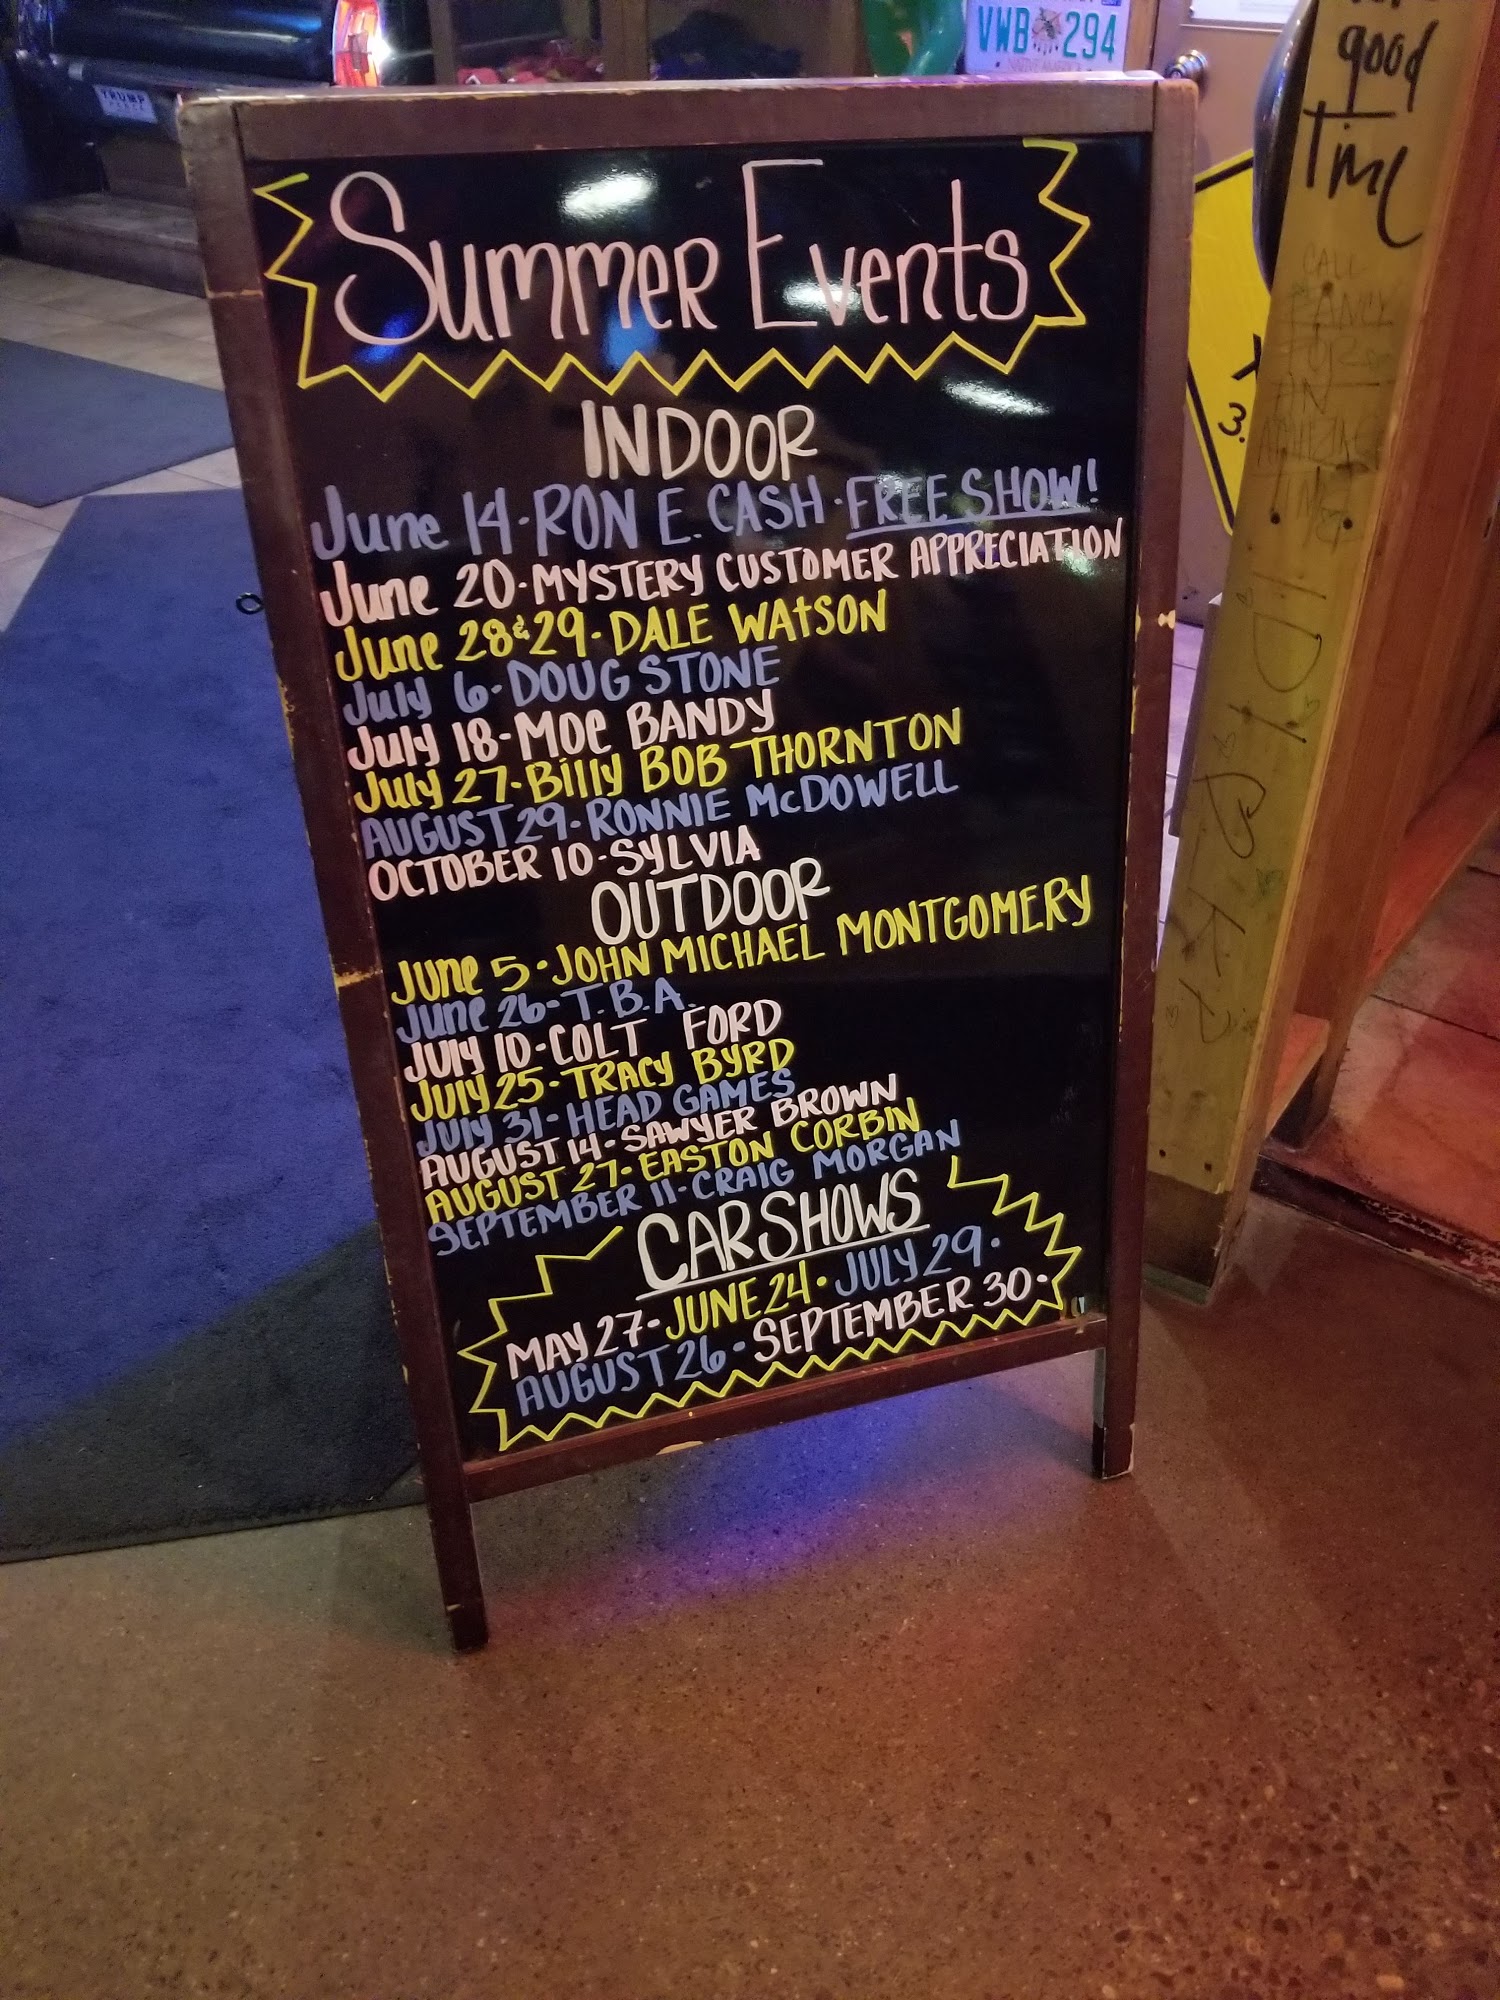 VWB 294
NATIVE AMERICA
TRUMP
PENCE
good
Time
CALL
AN
AMAZING
Time
3.
Summer Events
INDOOR
June 14 · RON E. CASH · FREE SHOW!
June 20 · MYSTERY CUSTOMER APPRECIATION
June 28 & 29 · DALE WATSON
July 6 · DOUG STONE
July 18 - MOE BANDY
July 27 · Billy BOB THORNTON
AUGUST 29 · RONNIE McDOWELL
OCTOBER 10 · SYLVIA
OUTDOOR
June 5 · JOHN MICHAEL MONTGOMERY
June 26 - T.B.A.
July 10 - COLT FORD
July 25 · TRACY BYRD
July 31 - HEAD GAMES
AUGUST 14 · SAWYER BROWN
AUGUST 27 · EASTON CORBIN
SEPTEMBER 11 - CRAIG MORGAN
CAR SHOWS
MAY 27 - JUNE 24 · JULY 29 ·
AUGUST 26 · SEPTEMBER 30 ·